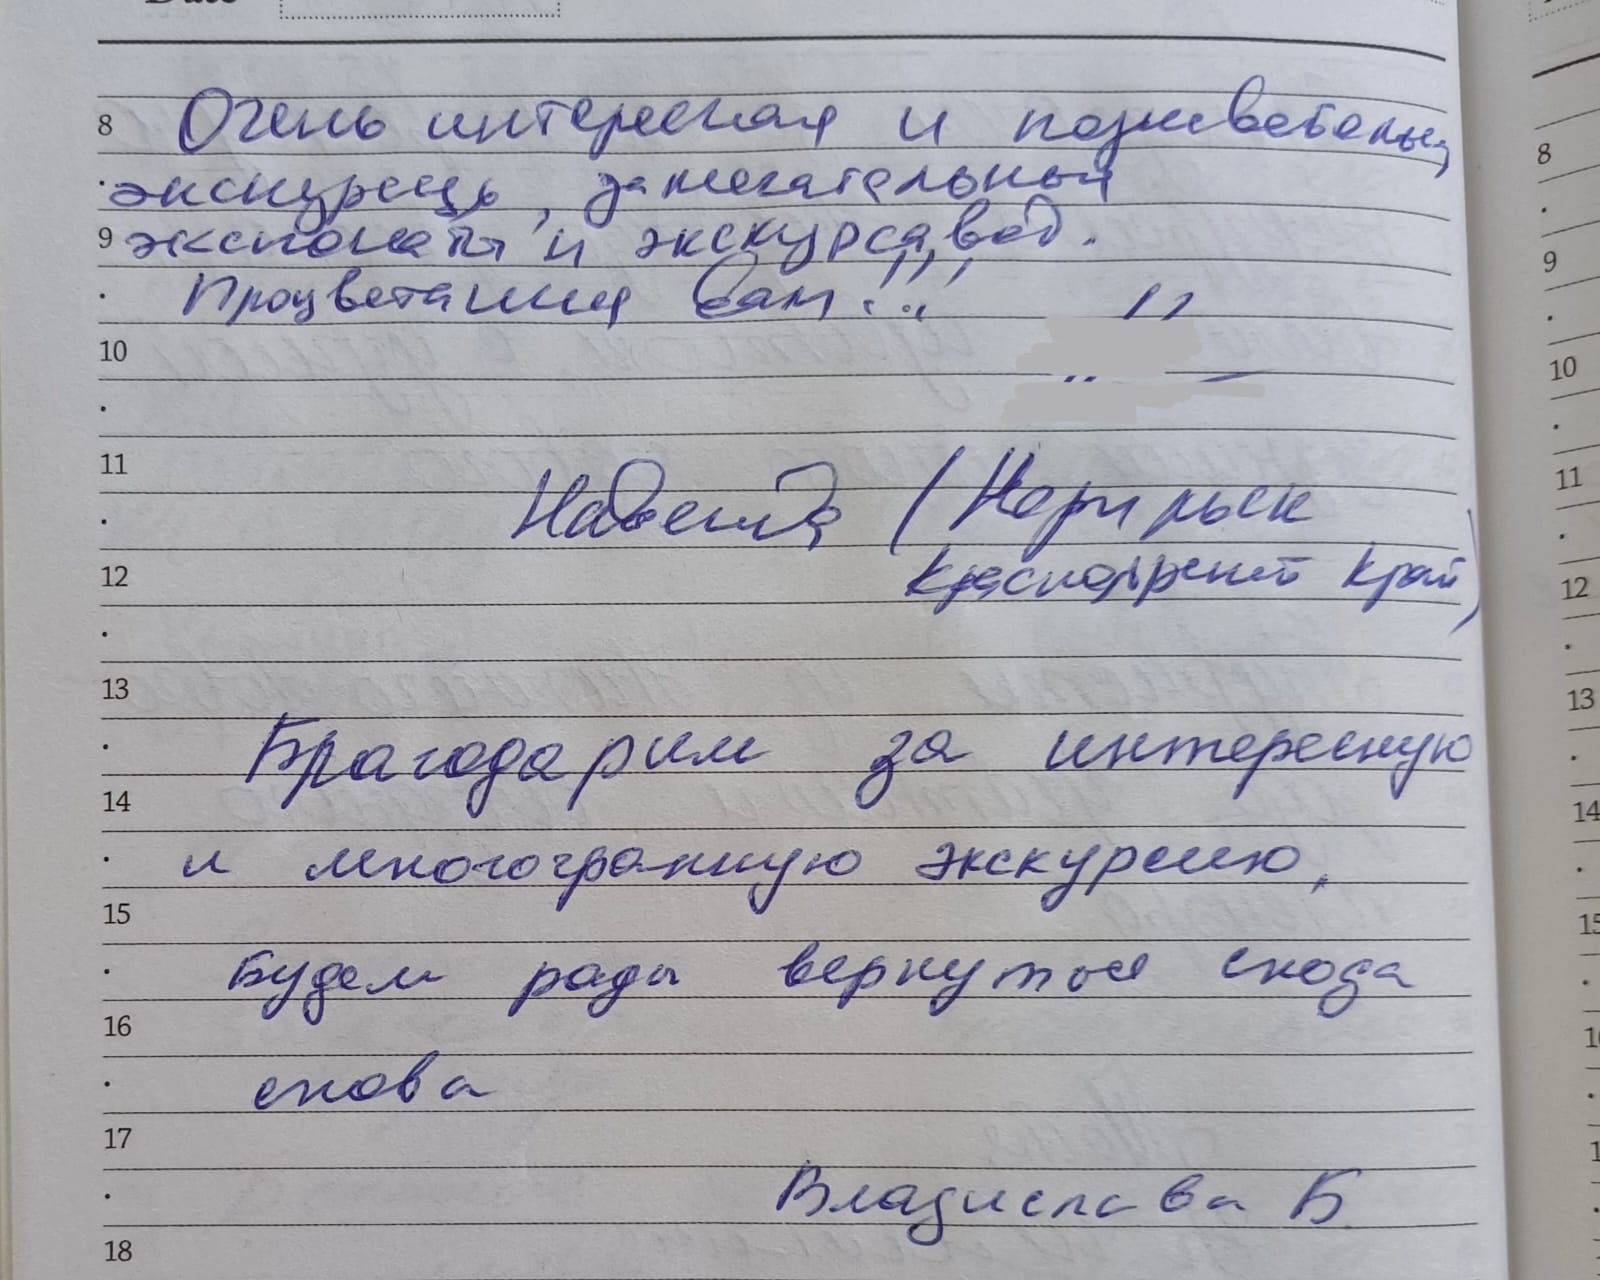 Date
8 Очень интересная и познавательная
экскурсия, замечательный
9 экспонаты и экскурсавод.
Процветания Вам!!!
10
11
Надежда (Норильск
12 Красноярский край)
13
Благодарим за интересную
14
и многогранную экскурсию,
15
Будем рады вернуться сюда
16
снова
17
Владислава Б
18
8
9
10
11
12
13
14
15